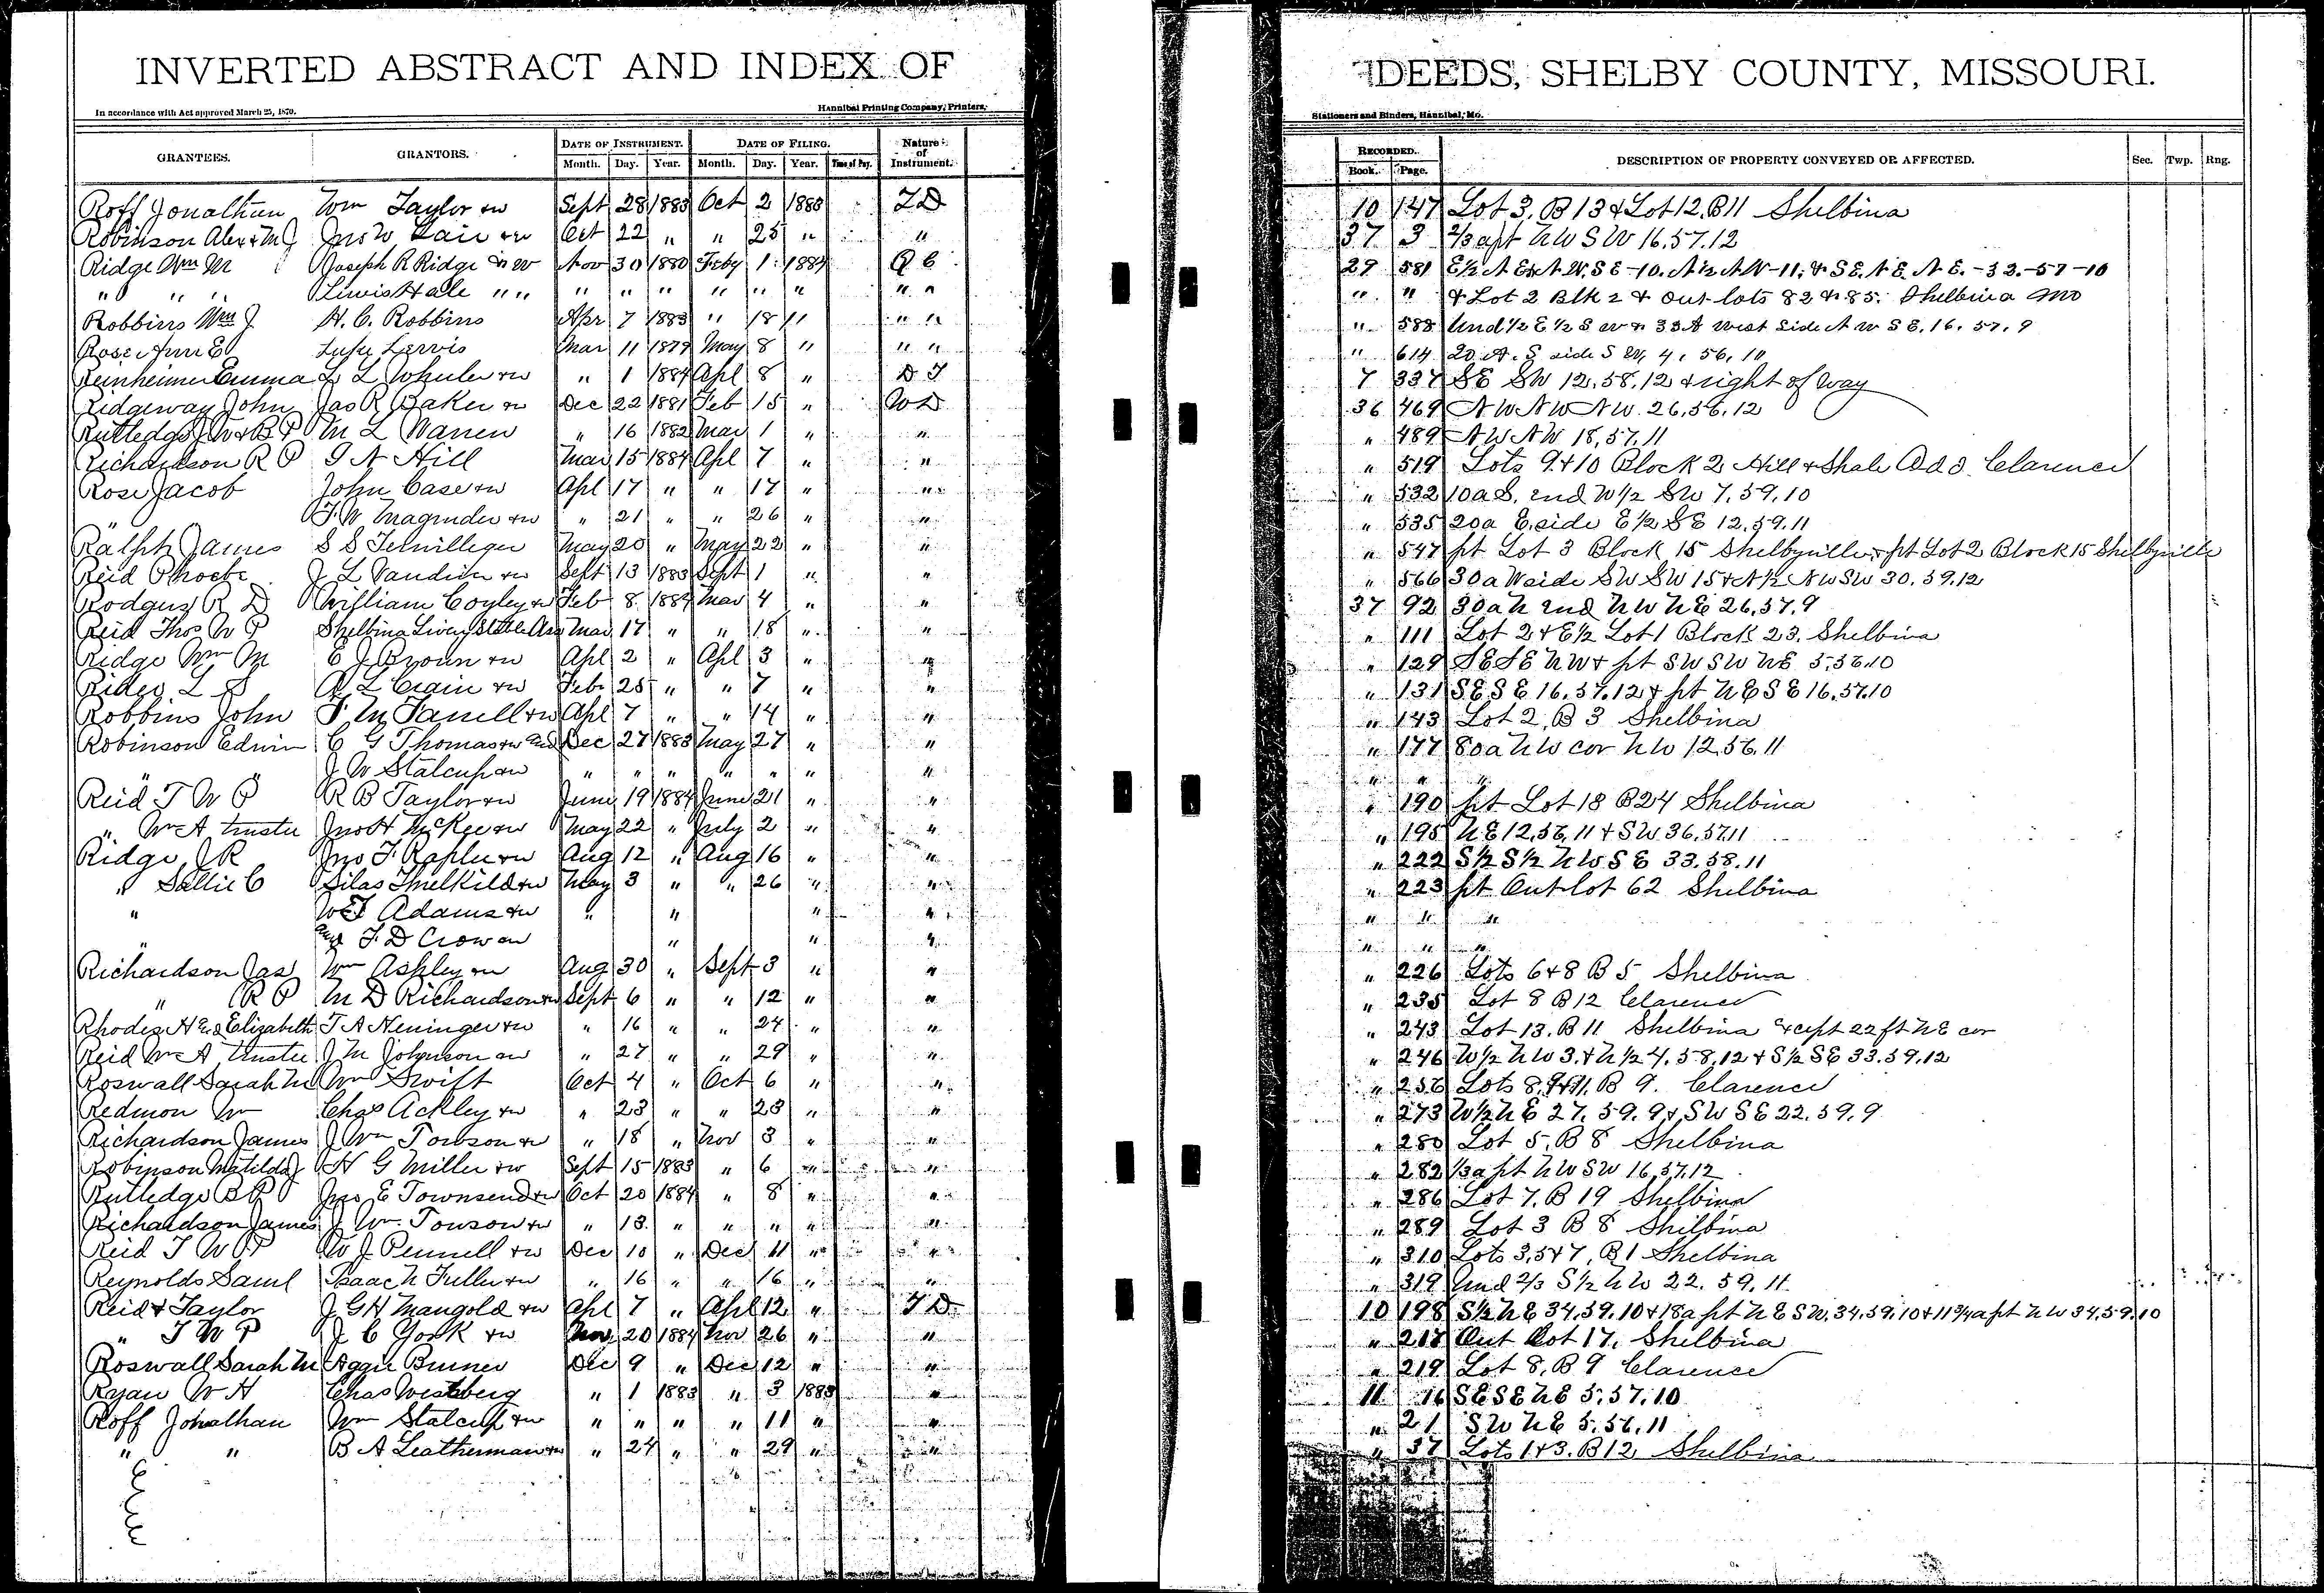 INVERTED ABSTRACT AND INDEX OF DEEDS, SHELBY COUNTY, MISSOURI.
In accordance with Act approved March 25, 1879. Hannibal Printing Company, Printers, Stationers and Binders, Hannibal, Mo.
GRANTEES. GRANTORS. DATE OF INSTRUMENT. Month. Day. Year. DATE OF FILING. Month. Day. Year. Time of Day. Nature of Instrument. RECORDED. Book. Page. DESCRIPTION OF PROPERTY CONVEYED OR AFFECTED. Sec. Twp. Rng.
Roff Jonathan Wm Taylor +w Sept 28 1883 Oct 2 1883 T D 10 147 Lot 3, B 13 + Lot 12, B 11 Shelbina
Robinson Alex + M J Jno W Lair +w Oct 22 " " 25 " " 37 3 2/3 a pt N W S W 16, 57, 12
Ridge Wm M Joseph R Ridge + w Nov 30 1880 Feby 1 1884 Q C 29 581 E½ N E + N W, S E - 10. N ½ N W - 11, + S E, N E, N E. - 33. - 57 - 10
" " " Lewis Hale " " " " " " " " " " " " + Lot 2 Blk 2 + Out lots 82 + 85. Shelbina Mo
Robbins Wm J H. C. Robbins Apr 7 1883 " 18 " " " " 588 Und ½ E ½ S W + 33 A West Side N W S E, 16, 57, 9
Rose Ann E Mar 11 1879 May 8 " " " " 614 20 A. S side S W, 4, 56, 10
Reinheimer Emma L L Whuler +w " 1 1884 Apl 8 " D T 7 337 S E S W 12, 58, 12 + right of way
Ridgeway John Jas R Baker +w Dec 22 1881 Feb 15 " W D 36 469 N W N W N W 26, 56, 12
Rutledge J W + B P M L Warren " 16 1882 Mar 1 " " " 489 N W N W 18, 57, 11
Richardson R P G N Hill Mar 15 1884 Apl 7 " " " 519 Lots 9 + 10 Block 2 Hill + Shale Add. Clarence
Rose Jacob John Case +w Apl 17 " " 17 " " " 532 10 a S. end W ½ S W 7, 59, 10
" T. W. Magruder +w " 21 " " 26 " " " 535 20a E. side E ½ S E 12, 59, 11
Ralph James S S Terwilleger May 20 " May 22 " " " 547 pt Lot 3 Block 15 Shelbyville + pt Lot 2 Block 15 Shelbyville
Reid Phoebe J L Vandiver +w Sept 13 1883 Sept 1 " " " 566 30 a W side S W S W 15 + N ½ N W S W 30, 59, 12
Rodgers R D William Coyley +w Feb 8 1884 Mar 4 " " 37 92 30 a N end N W N E 26, 57, 9
Reid Thos W P Shelbina Livery Stable Ass Mar 17 " " 18 " " " 111 Lot 2 + E½ Lot 1 Block 23. Shelbina
Ridge Wm M E J Brown +w Apl 2 " Apl 3 " " " 129 S E S E N W + pt S W S W N E 5, 56, 10
Rider L S A L Crain +w Feb 25 " " 7 " " " 131 S E S E 16, 57, 12 + pt N E S E 16, 57, 10
Robbins John F. M Farrell +w Apl 7 " " 14 " " " 143 Lot 2, B 3 Shelbina
Robinson Edwin C G Thomas +w and Dec 27 1883 May 27 " " " 177 80 a N W cor N W 12, 56, 11
" " J W Stalcup +w " " " " " " " " " "
Reid T W P R B Taylor +w June 19 1884 June 21 " " " 190 pt Lot 18 B 24 Shelbina
" Wm A trustee Jno H McKee +w May 22 " July 2 " " " 195 N E 12, 56, 11 + S W 36, 57, 11
Ridge J R Jno F. Rapler +w Aug 12 " Aug 16 " " " 222 S½ S½ N W S E 33, 58, 11
" Sallie C Silas Threlkild +w May 3 " " 26 " " " 223 pt Out lot 62 Shelbina
" W T Adams +w " " " " " " "
" and F. D Crow +w " " " " " "
Richardson Jas Wm Ashley +w Aug 30 " Sept 3 " " " 226 Lots 6 + 8 B 5 Shelbina
" R P M D Richardson +w Sept 6 " " 12 " " " 235 Lot 8 B 12 Clarence
Rhodes H and Elizabeth T A Neninger +w " 16 " " 24 " " " 243 Lot 13. B 11 Shelbina except 22 ft N E cor
Reid Wm A trustee J M Johnson +w " 27 " " 29 " " " 246 W½ N W 3, + N ½ 4, 58, 12 + S½ S E 33. 59, 12
Roswall Sarah M Wm Swift Oct 4 " Oct 6 " " " 256 Lots 8, 9 + 11, B 9. Clarence
Redmon Wm Chas Ackley +w " 23 " " 23 " " " 273 W½ N E 27, 59, 9 + S W S E 22, 59, 9
Richardson James J Wm Towson +w " 18 " Nov 3 " " " 280 Lot 5, B 8 Shelbina
Robinson Matilda J H G Miller +w Sept 15 1883 " 6 " " " 282 1/3 a pt N W S W 16, 57, 12
Rutledge B P Jno E Townsend +w Oct 20 1884 " 8 " " " 286 Lot 7, B 19 Shelbina
Richardson James J Wm Towson +w " 13 " " " " " " 289 Lot 3 B 8 Shelbina
Reid T W P W J Pennell +w Dec 10 " Dec 11 " " " 310 Lots 3, 5 + 7, B 1 Shelbina
Reynolds Saml Isaac N Fuller +w " 16 " " 16 " " " 319 Und 2/3 S½ N W 22, 59, 11
Reid + Taylor J G H Mangold +w Apl 7 " Apl 12 " T D 10 198 S½ N E 34, 59, 10 + 18 a pt N E S W, 34, 59, 10 + 11¾ a pt N W 34, 59, 10
" T W P J C York +w Nov 20 1884 Nov 26 " " " 217 Out Lot 17, Shelbina
Roswall Sarah M Aggie Burner Dec 9 " Dec 12 " " " 219 Lot 8, B 9 Clarence
Ryan W H Chas Westberg " 1 1883 " 3 1883 " 11 16 S E S E N E 5, 57, 10
Roff Jonathan Wm Stalcup +w " " " " 11 " " " 21 S W N E 5, 56, 11
" " B A Leatherman +w " 24 " " 29 " " " 37 Lots 1 + 3. B 12, Shelbina